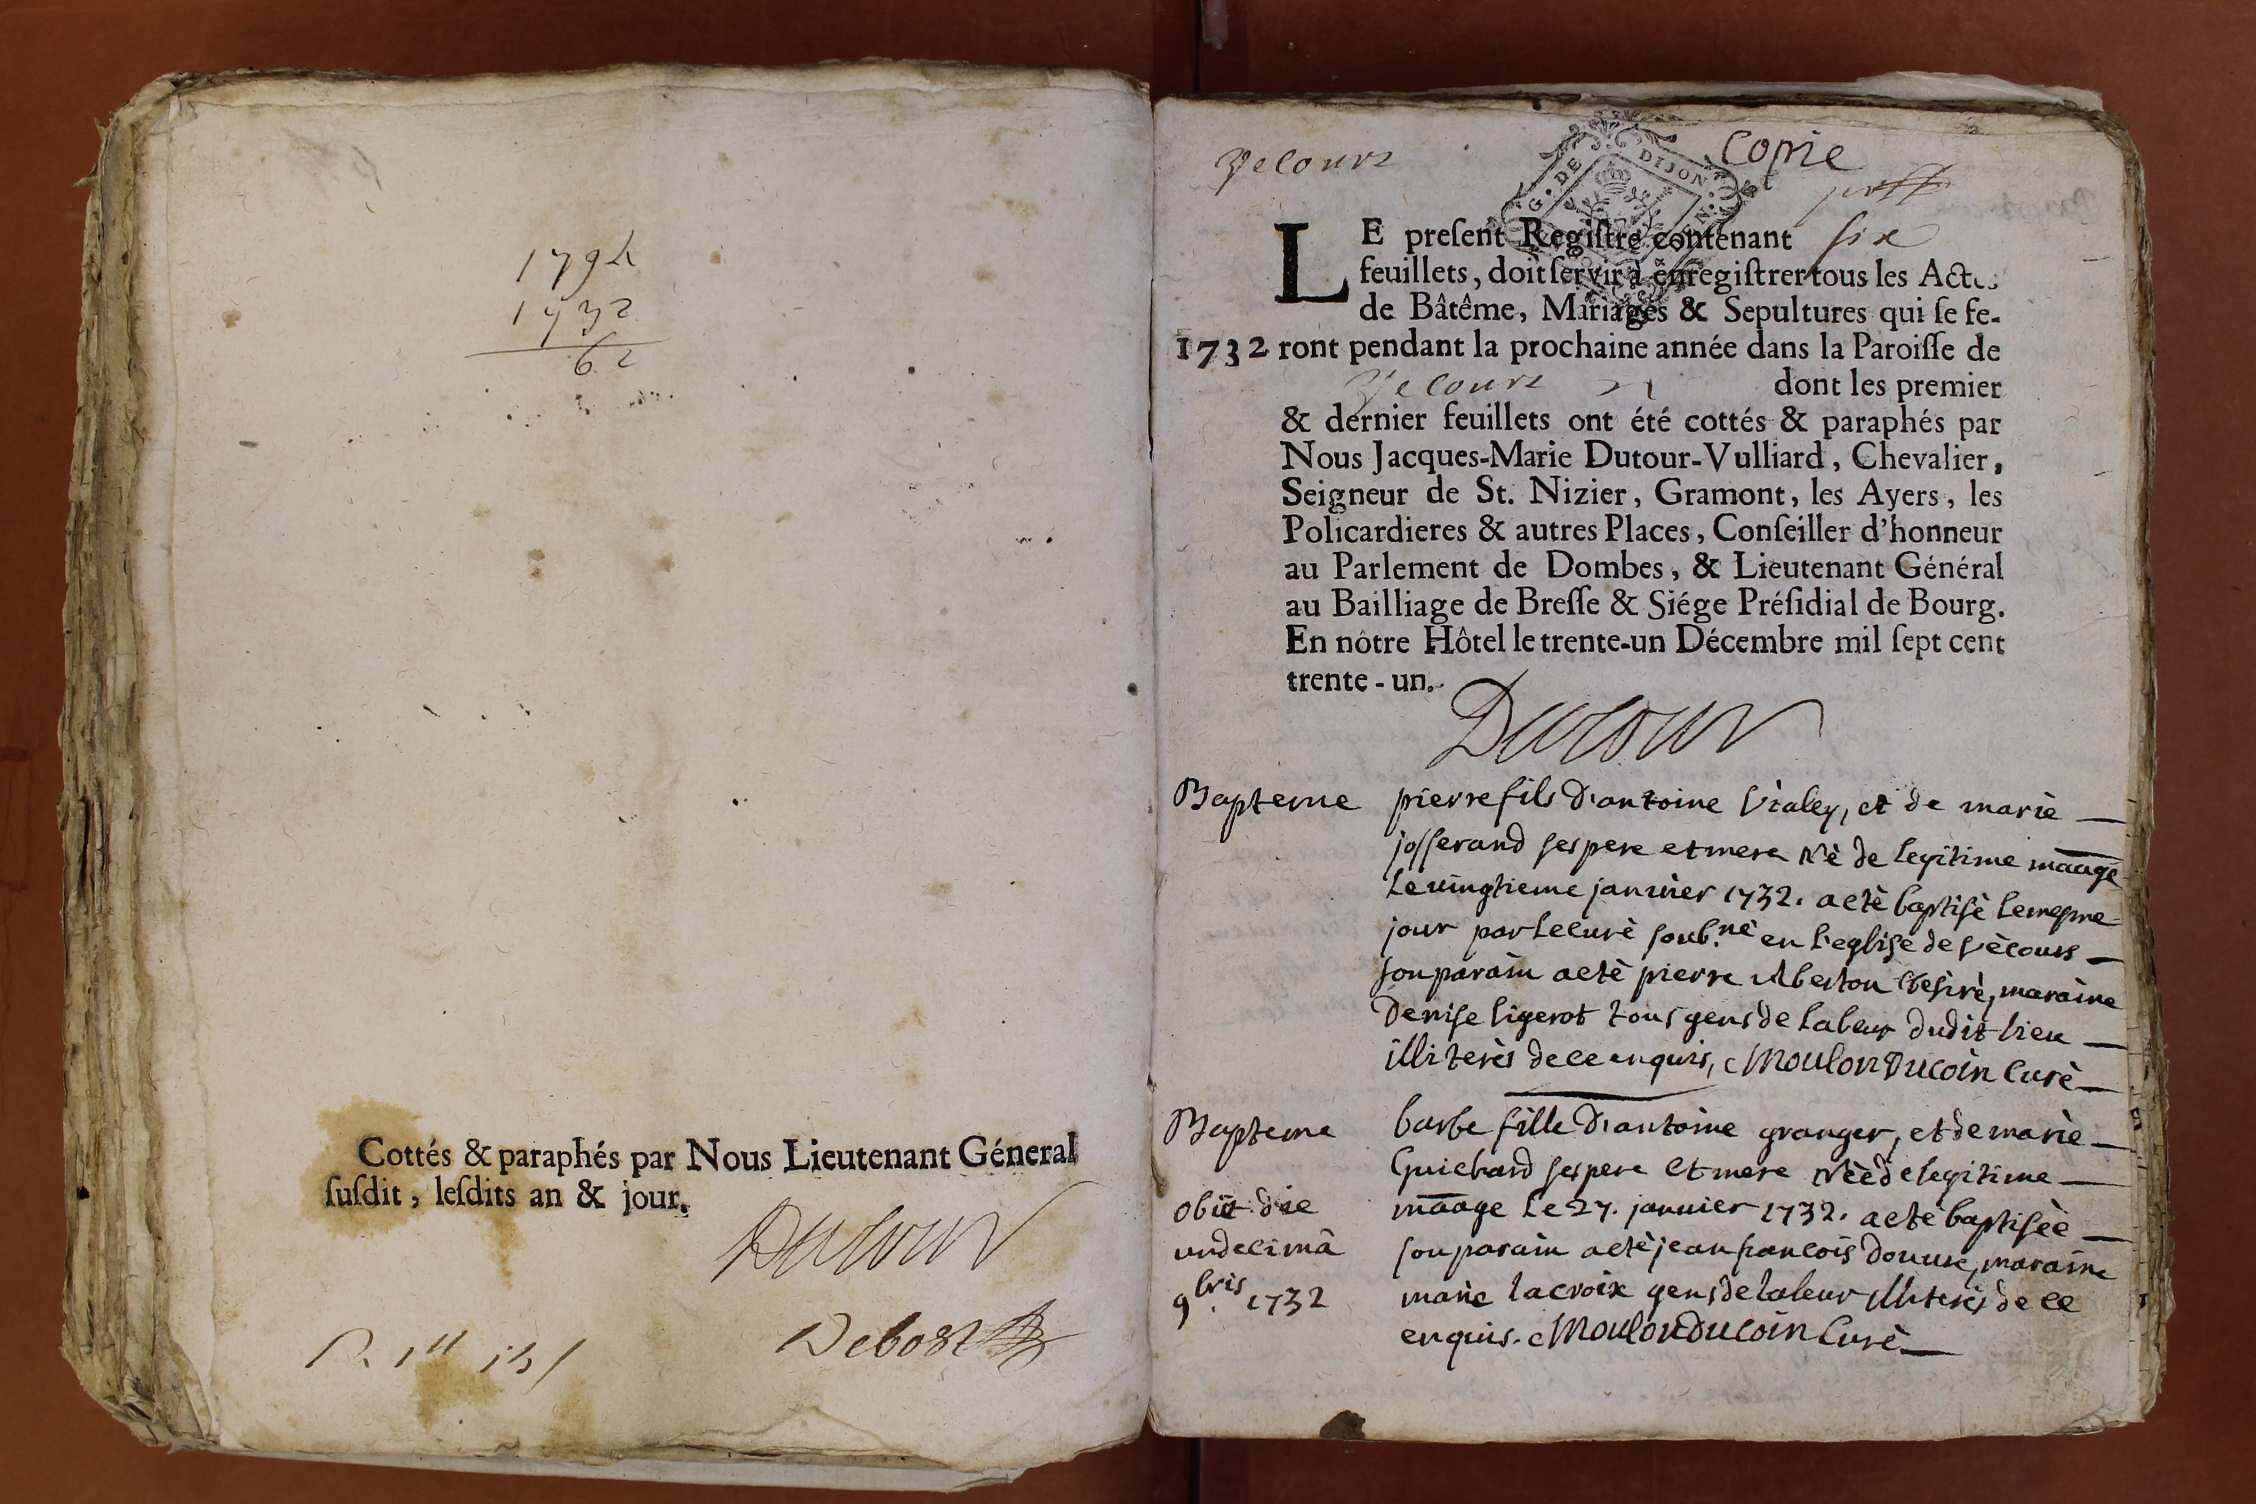 1794
1732
62
Cottés & paraphés par Nous Lieutenant Géneral
ſuſdit, leſdits an & jour.
Dutour
Debost
Vecours
Copie
G. DE DIJON
LE preſent Regiſtre contenant six
feuillets, doit ſervir à enregiſtrer tous les Actes
de Bâtême, Mariages & Sepultures qui ſe fe-
1732 ront pendant la prochaine année dans la Paroiſſe de
Vecours dont les premier
& dernier feuillets ont été cottés & paraphés par
Nous Jacques-Marie Dutour-Vulliard, Chevalier,
Seigneur de St. Nizier, Gramont, les Ayers, les
Policardieres & autres Places, Conſeiller d'honneur
au Parlement de Dombes, & Lieutenant Général
au Bailliage de Breſſe & Siége Préſidial de Bourg.
En nôtre Hôtel le trente-un Décembre mil ſept cent
trente-un.
Dutour
Bapteme
pierre fils D'antoine Vialey, et de marie
josserand ses pere et mere Nè de legitime maage
Le vingtieme janvier 1732. a etè baptisè le mesme
jour par le curè soub.nè en l'eglise de Vècours
son parain a etè pierre Alberton desirè, maraine
Denise ligerot tous gens de labeur dudit lieu
illiterès de ce enquis, Moulon Ducoin Curè
Bapteme
barbe fille D'antoine granger, et de marie
Guichard ses pere et mere Nèe de legitime
maage Le 27. janvier 1732. a etè baptisèe
son parain a etè jean francois Douvre, maraine
marie lacroix gens de labeur illiterès de ce
enquis. Moulon Ducoin Curè
obiit die
undecimâ
9bris. 1732